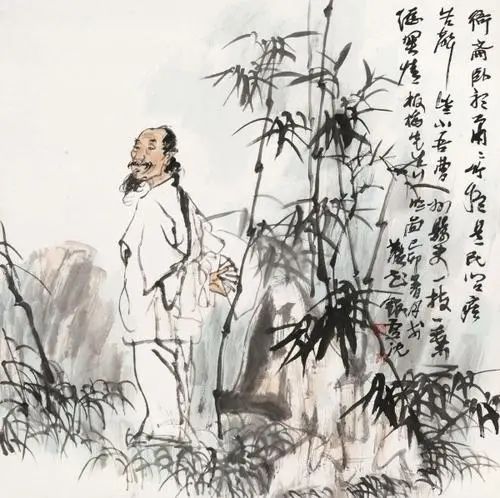 衙斋卧听萧萧竹疑是民间疾
苦声些小吾曹州县吏一枝一叶
总关情板桥先生画己卯春月